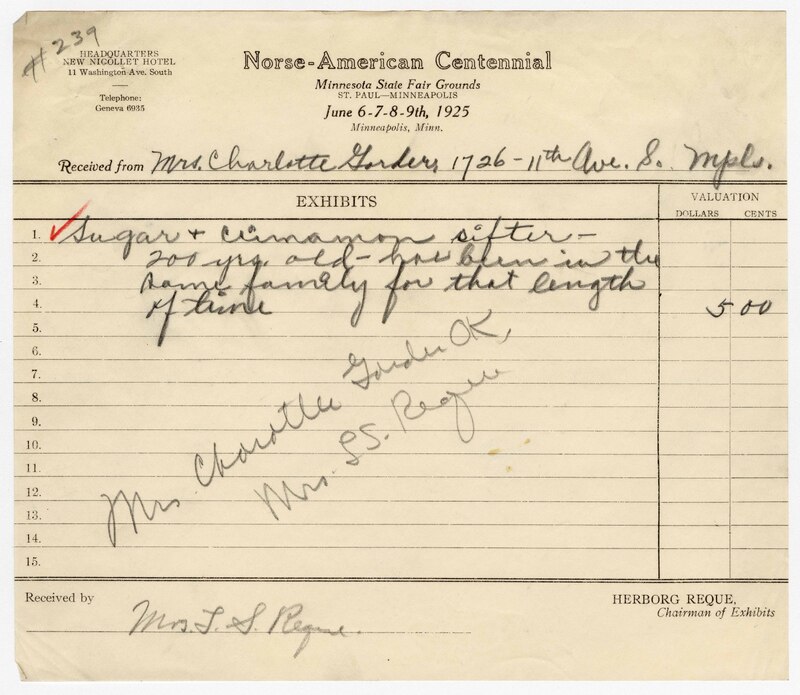 #239
HEADQUARTERS
NEW NICOLLET HOTEL
11 Washington Ave. South
Telephone:
Geneva 6935
Norse-American Centennial
Minnesota State Fair Grounds
ST. PAUL—MINNEAPOLIS
June 6-7-8-9th, 1925
Minneapolis, Minn.
Received from Mrs. Charlotte Gorder, 1726-11th Ave. S. Mpls.
EXHIBITS
VALUATION
DOLLARS CENTS
1. ✓ Sugar + cinnamon sifter -
2. 200 yrs. old - has been in the
3. same family for that length
4. of time 5 00
5.
6.
7.
8.
9.
10.
11.
12.
13.
14.
15.
Mrs Charotte Gorder OK,
Mrs. L S. Reque
Received by Mrs. L. S. Reque.
HERBORG REQUE,
Chairman of Exhibits